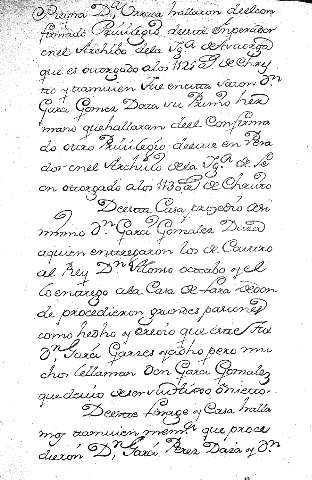 Reyna Dª Urraca hallaron deel con
firmado Privilegio desu emperador
en el Archibo dela Yglª de Astorga
que es otorgado a los 1125 aº de Chrys
to y tamvien fue en otra varon Dn
Garci Gomez Daza su Primo her
mano que hallaran deel Confirma
do otro Privilegio desu en Pera
dor en el Archibo de la Yglª de Le
on otorgado a los 1130 aº de Christo
De esta Casa prozedio asi
mismo Dn Garci Gonzalez Daza
a quien entregaron los de Castro
al Rey Dn Alonso octabo y el
lo entrego a la Casa de Lara de don
de procedieron grandes pasiones
como hedho y creeio que este fue
Dn Garci Garzes y dho pero mu
chos le llaman Don Garci Gonzalez
que devio de ser su hijo o nieto.
De este linage y Casa halla
mos tamvien memª que proce
dieron Dn Garci Perez Daza y Dn